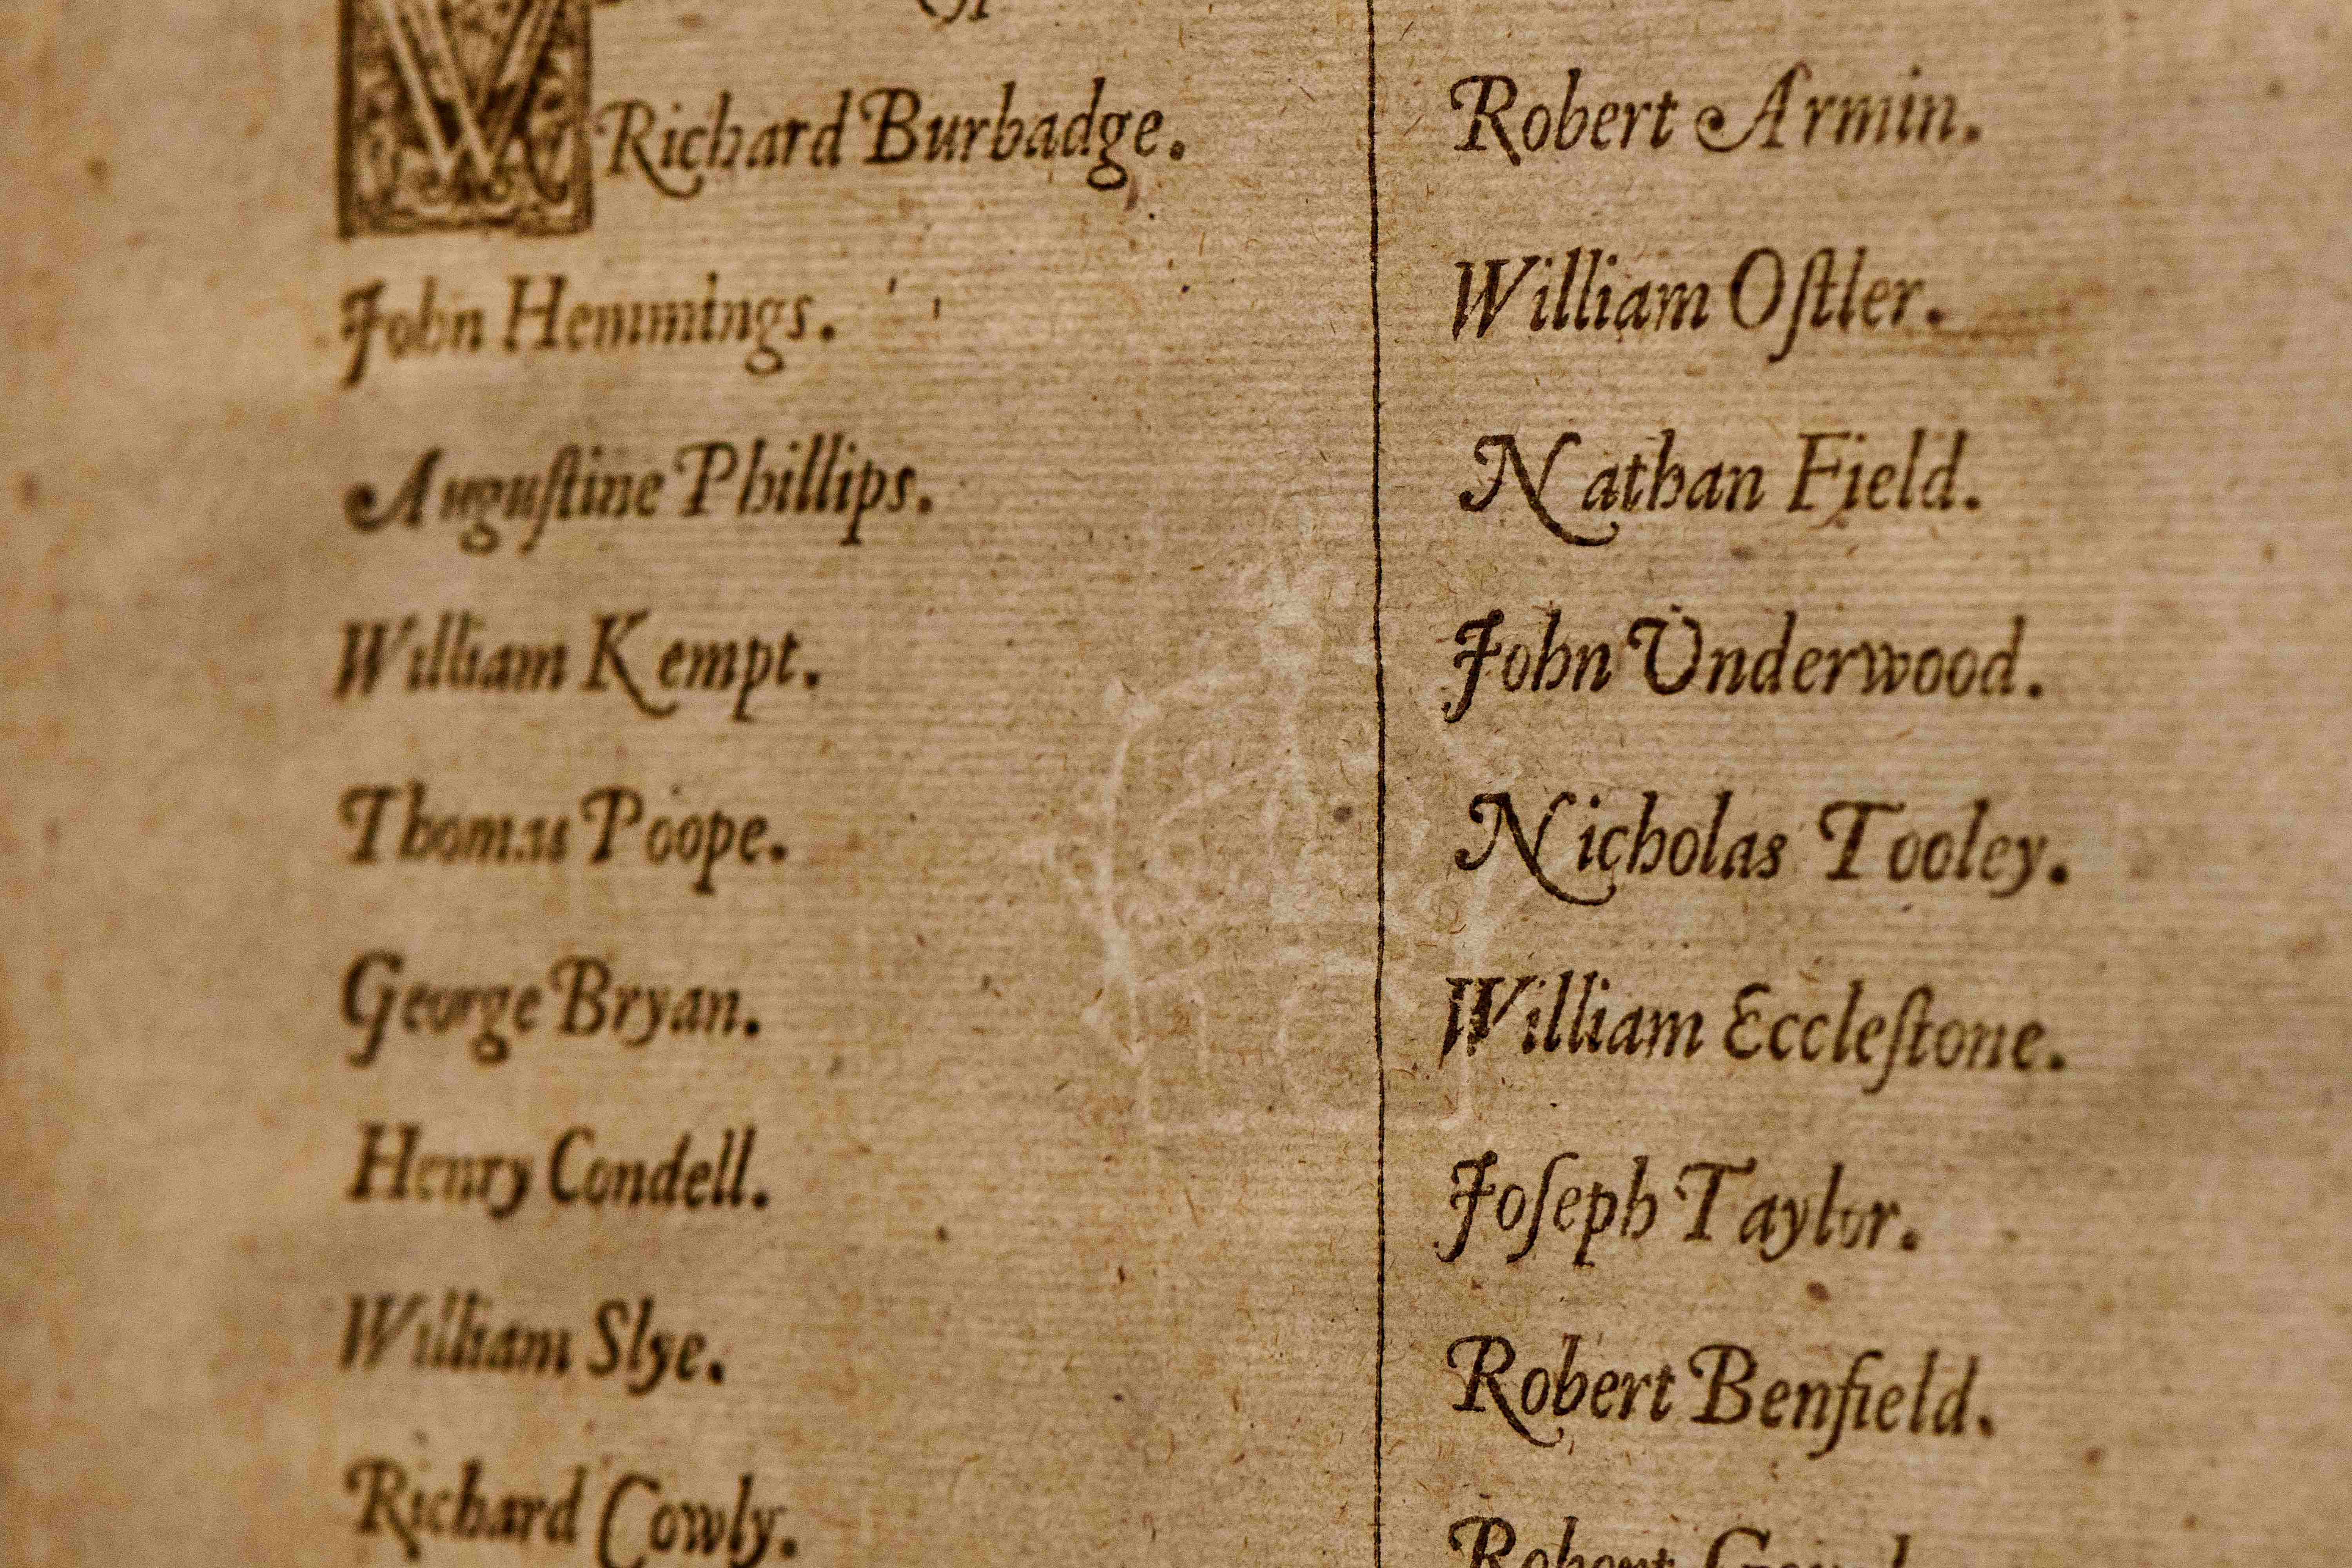 W
Richard Burbadge.
John Hemmings.
Auguſtine Phillips.
William Kempt.
Thomas Poope.
George Bryan.
Henry Condell.
William Slye.
Richard Cowly.
Robert Armin.
William Oſtler.
Nathan Field.
John Underwood.
Nicholas Tooley.
William Eccleſtone.
Joſeph Taylor.
Robert Benfield.
Robert